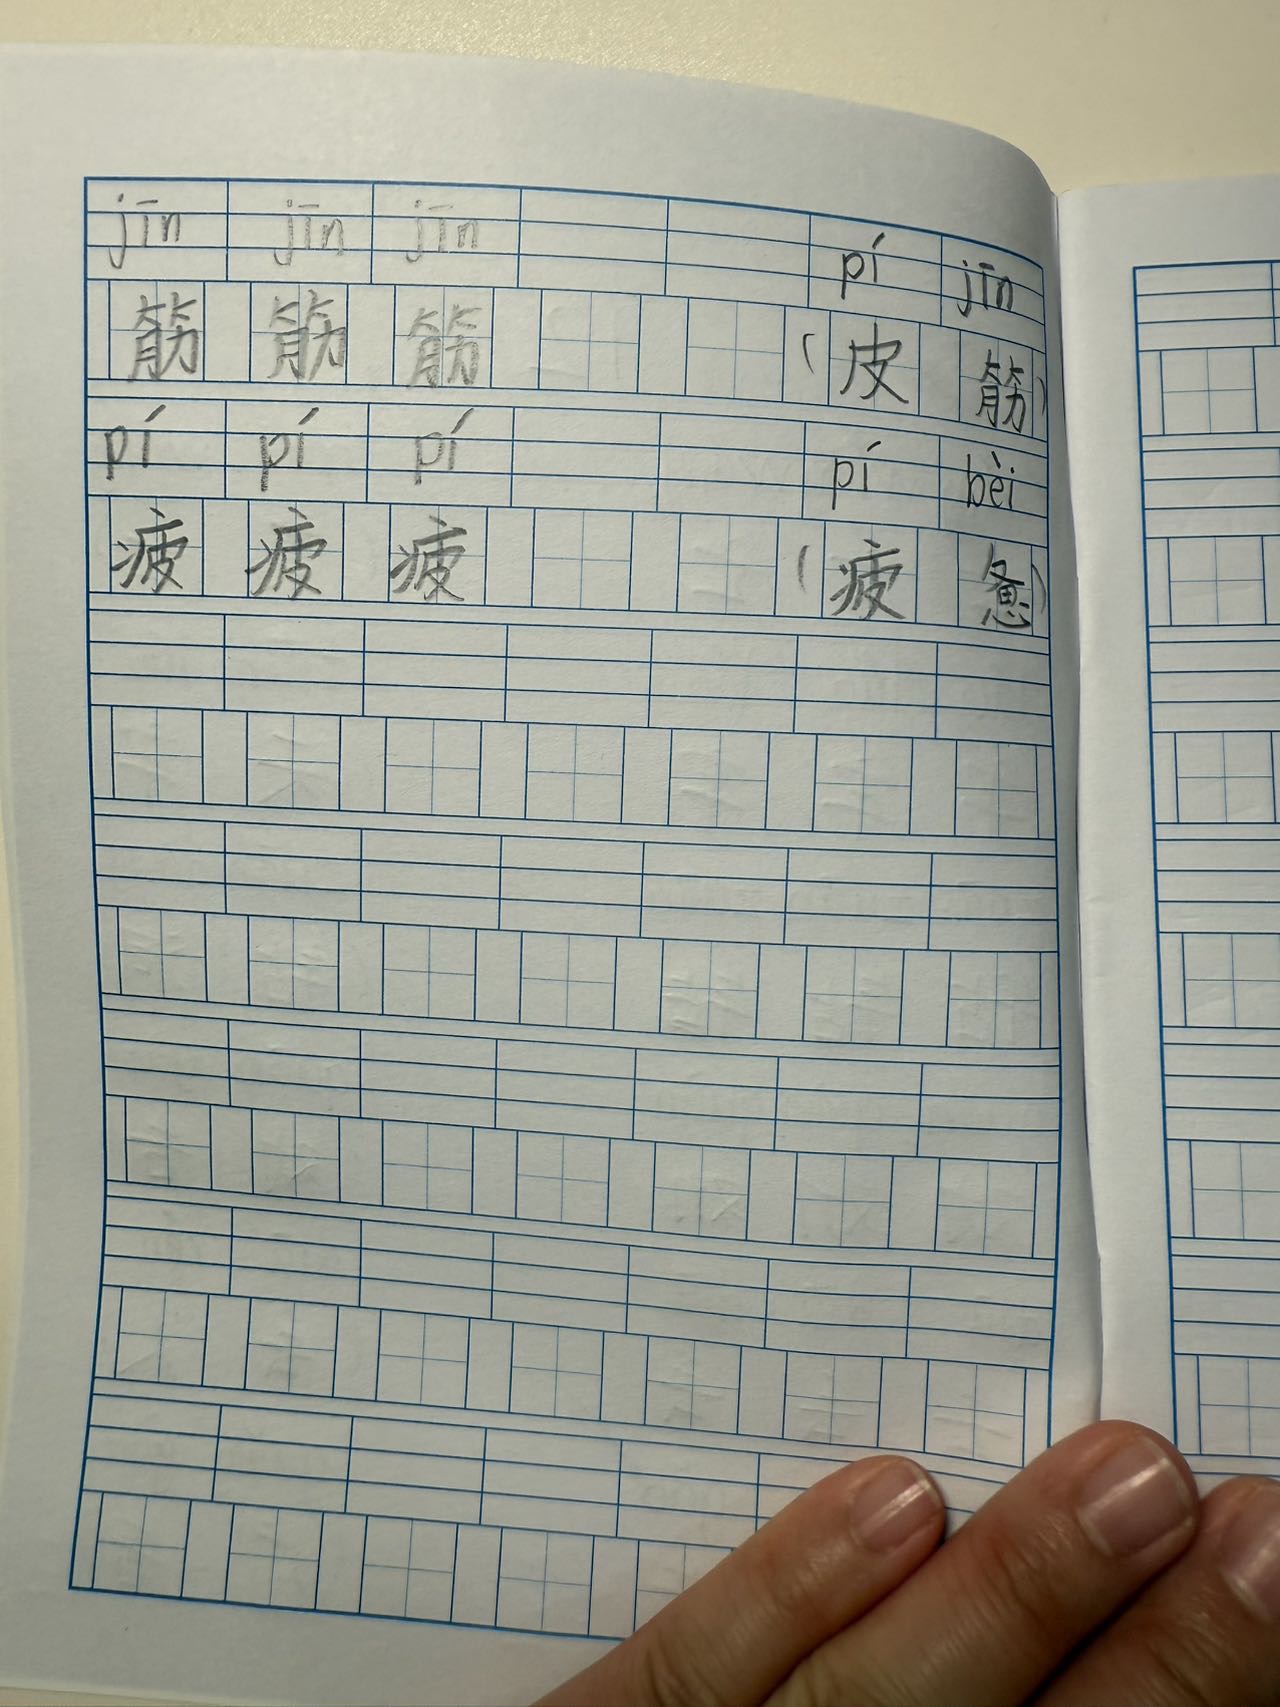 jīn jīn jīn pí jīn
筋 筋 筋 (皮 筋)
pí pí pí pí bèi
疲 疲 疲 (疲 惫)